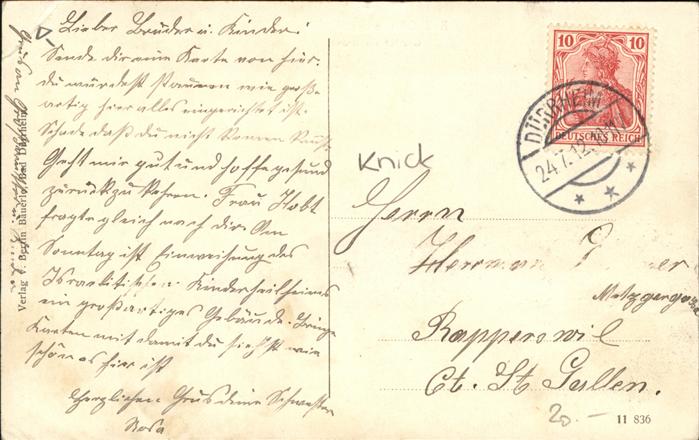 Lieber Bruder u. Kinder!
Sende dir eine Karte von hier.
du würdest staunen wie groß-
artig hier alles eingerichtet ist.
Schade daß du nicht kommen kannst
Geht mir gut und hoffe gesund
zurückzukehren. Frau
fragte gleich nach dir. Am
Sonntag ist Einweihung des
Israelitischen Kinderheilheims
ein großartiges Gebäude. Bringe
Karten mit damit du siehst wie
schön es hier ist
Herzlichen Grus deine Schwester
Rosa
Verlag v. Bäuerle, Bad Dürrheim
10 10
DEUTSCHES REICH
DÜRRHEIM
24.7.12.
Knick
Herrn
Herrman
Metzgergasse
Rapperswil
Ct. St. Gallen.
20.-
11 836